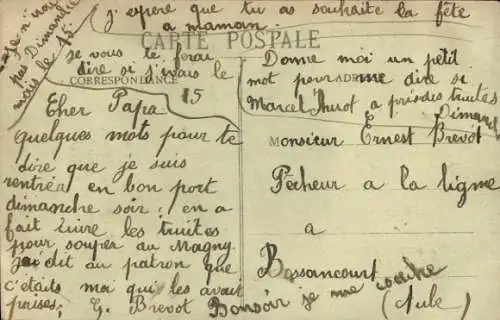 je n'irai
pas Dimanche
mais le 15
j'espere que tu as souhaité la fête
a maman
je vous le ferai
dire si j'irais le
15
CARTE POSTALE
CORRESPONDANCE
Donne moi un petit
mot pour me dire si
Marcel Hurot a pris des truites
Dimanche
Cher Papa
quelques mots pour te
dire que je suis
rentrér en bon port
dimanche soir, on a
fait cuire les truites
pour souper au Magny
j'ai dit au patron que
c'étaits moi qui les avait
prises,
G. Brevot Bonsoir je me couche
Monsieur Ernest Brevot
Pecheur a la ligne
a
Bossancourt
(Aube)